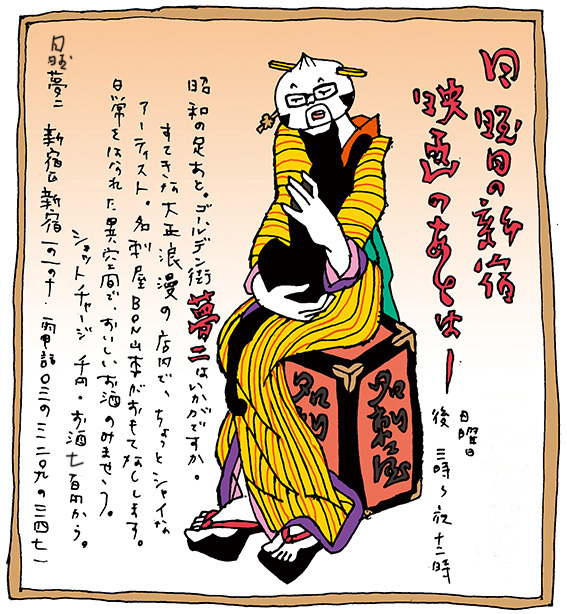 日曜日の新宿
映画のあとはー
日曜日
後 三時〜夜十二時
昭和の足あと。ゴールデン街 夢二はいかがですか。
すてきな大正浪漫の店内で、ちょっとシャイな
アーティスト。名刺屋BON山本がおもてなしします。
日常をはなれた異空間で、おいしいお酒のみませう。
ショットチャージ 千円・お酒七百円から。
日曜夢二 新宿区新宿一の一の十・電話〇三の三二〇九の二四七一
名刺屋
名刺